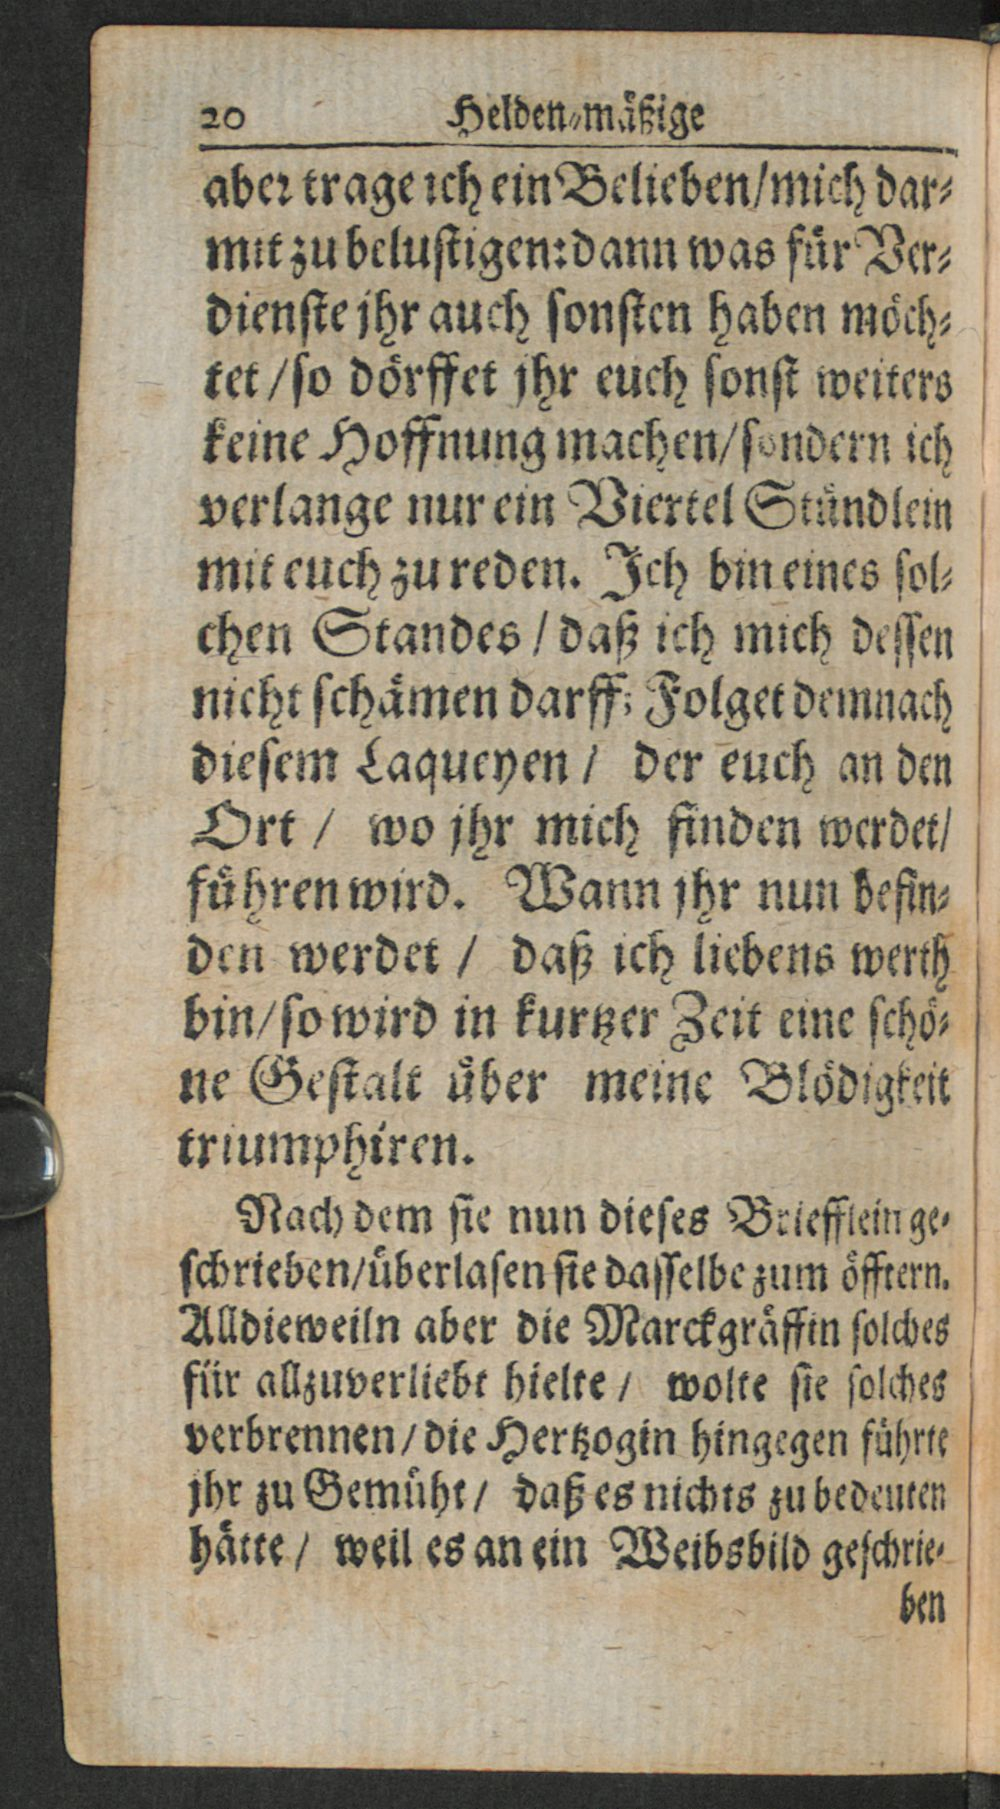 20 Helden-mäßige
aber trage ich ein Belieben/mich dar-
mit zu belustigen: dann was für Ver-
dienste jhr auch sonsten haben möch-
tet/so dörffet jhr euch sonst weiters
keine Hoffnung machen/sondern ich
verlange nur ein Viertel Stündlein
mit euch zu reden. Ich bin eines sol-
chen Standes/daß ich mich dessen
nicht schämen darff; Folget demnach
diesem Laqueyen/ der euch an den
Ort/ wo jhr mich finden werdet/
führen wird. Wann jhr nun befin-
den werdet/ daß ich liebens werth
bin/so wird in kurtzer Zeit eine schö-
ne Gestalt über meine Blödigkeit
triumphiren.
Nach dem sie nun dieses Briefflein ge-
schrieben/überlasen sie dasselbe zum öfftern.
Alldieweiln aber die Marckgräffin solches
für allzuverliebt hielte/ wolte sie solches
verbrennen/die Hertzogin hingegen führte
jhr zu Gemüht/ daß es nichts zu bedeuten
hätte/ weil es an ein Weibsbild geschrie-
ben